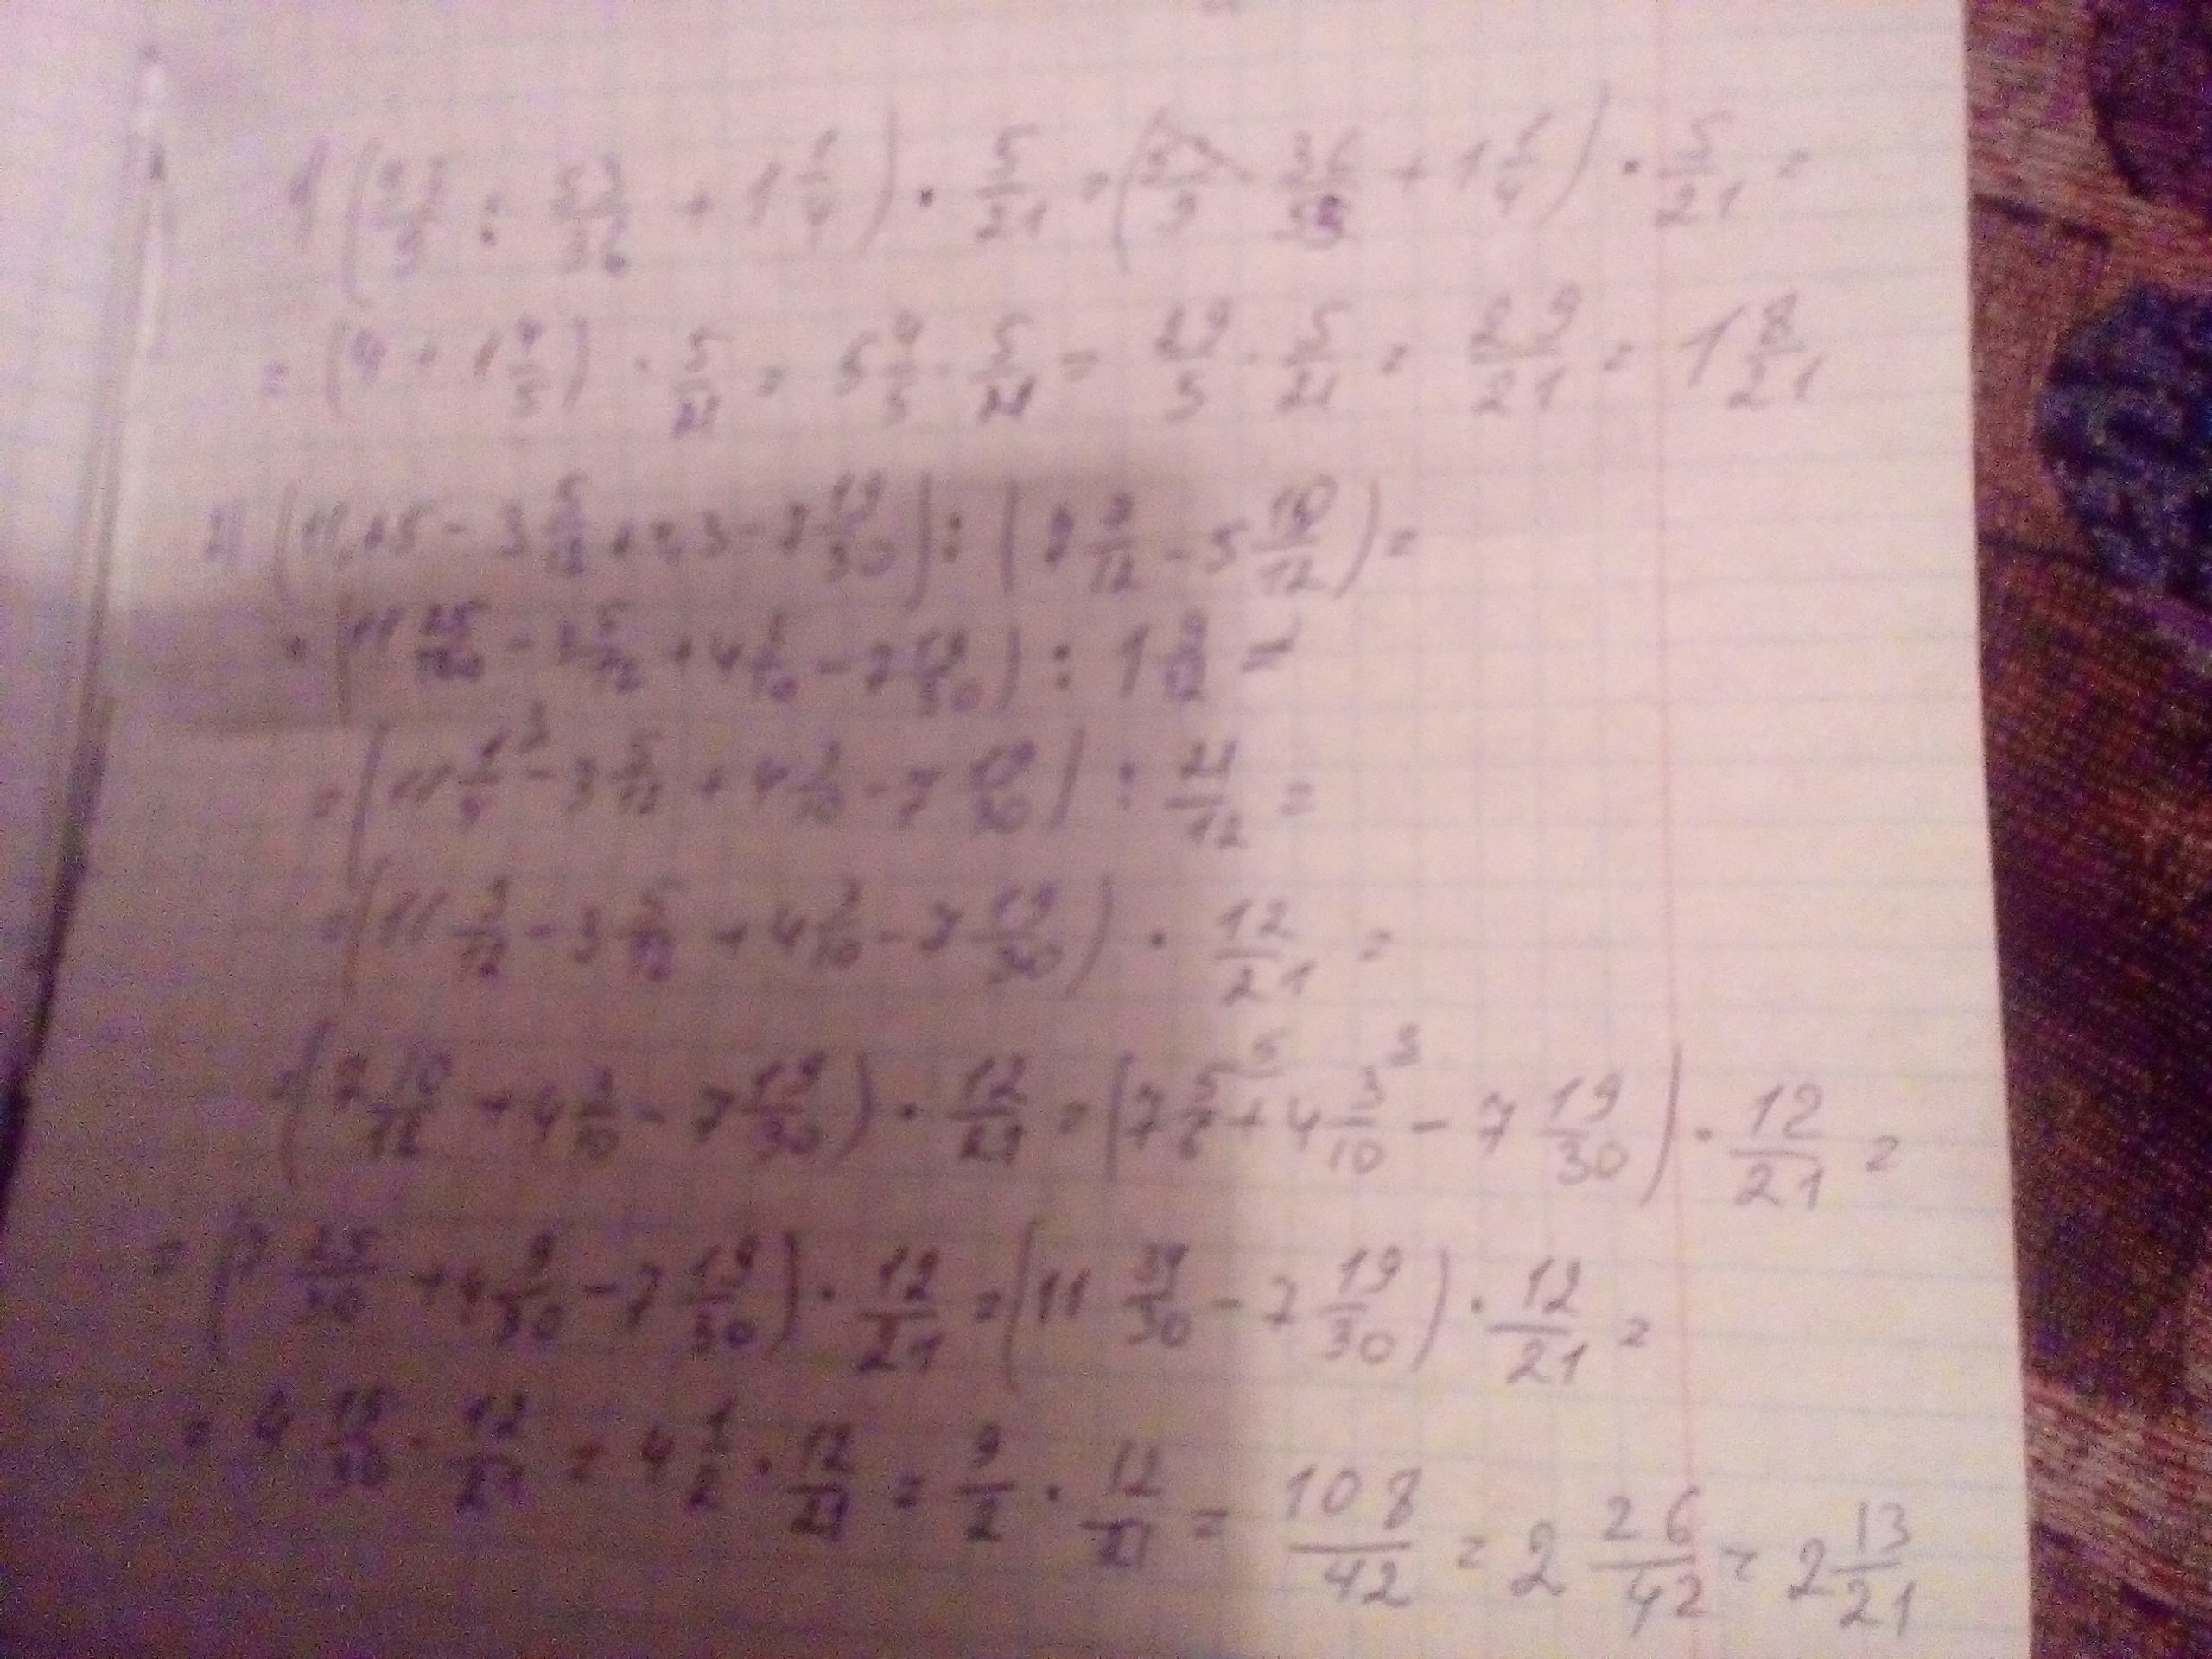 1) (53/9 : 53/36 + 1 1/4) · 5/21 = (53/9 · 36/53 + 1 1/4) · 5/21 =
= (4 + 1 4/5) · 5/21 = 5 4/5 · 5/21 = 29/5 · 5/21 = 29/21 = 1 8/21
2) (11,25 - 3 5/12 + 4,3 - 7 19/30) : (7 7/12 - 5 10/12) =
= (11 25/100 - 3 5/12 + 4 3/10 - 7 19/30) : 1 9/12 =
= (11 1/4 ³ - 3 5/12 + 4 3/10 - 7 19/30) : 21/12 =
= (11 3/12 - 3 5/12 + 4 3/10 - 7 19/30) · 12/21 =
= (7 10/12 + 4 3/10 - 7 19/30) · 12/21 = (7 5/6 ⁵ + 4 3/10 ³ - 7 19/30) · 12/21 =
= (7 25/30 + 4 9/30 - 7 19/30) · 12/21 = (11 34/30 - 7 19/30) · 12/21 =
= 4 15/30 · 12/21 = 4 1/2 · 12/21 = 9/2 · 12/21 = 108/42 = 2 26/42 = 2 13/21